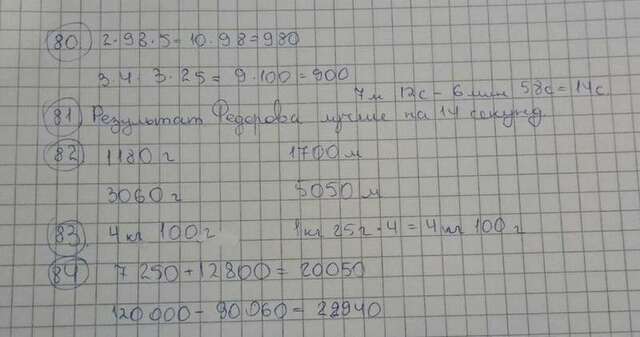 80 2·98·5=10·98=980
3·4·3·25=9·100=900
7м 12с - 6мин 58с=14с.
81 Результат Федорова лучше на 14 секунд.
82 1180 г 1700 м
3060 г 5050 м
83 4 кг 100 г 1кг 25г·4=4 кг 100 г
84 7 250+12800=20050
120 000-90 060=29940